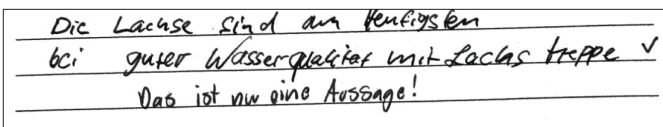 Die Lachse sind am heufigsten
bei guter Wasserqualität mit Lachs treppe ✓
Das ist nur eine Aussage!